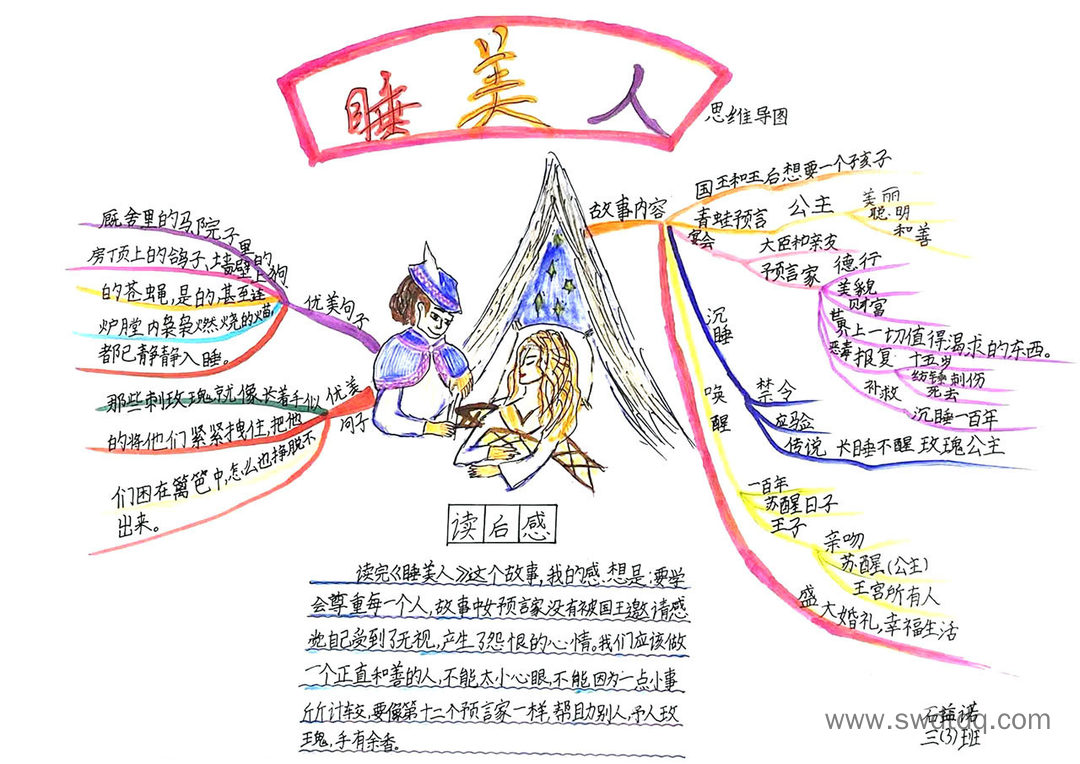 睡美人
思维导图
故事内容
国王和王后想要一个孩子
青蛙预言
公主
美丽
聪明
和善
宴会
大臣和亲友
预言家
德行
美貌
财富
世界上一切值得渴求的东西。
恶毒报复
十五岁
纺锤刺伤
死去
补救
沉睡一百年
沉睡
禁令
应验
传说 长睡不醒 玫瑰公主
唤醒
一百年
苏醒日子
王子
亲吻
苏醒(公主)
王宫所有人
盛大婚礼,幸福生活
优美句子
厩舍里的马、院子里
房顶上的鸽子、墙壁上
的狗
的苍蝇,是的,甚至连
炉膛内熊熊燃烧的火苗
都已静静入睡。
优美
句子
那些刺玫瑰就像长着手似
的将他们紧紧拽住,把他
们困在篱笆中,怎么也挣脱不
出来。
读后感
读完《睡美人》这个故事,我的感想是:要学
会尊重每一个人,故事中女预言家没有被国王邀请感
觉自己受到了无视,产生了怨恨的心情。我们应该做
一个正直和善的人,不能太小心眼,不能因为一点小事
斤斤计较,要像第十二个预言家一样,帮助别人,予人玫
瑰,手有余香。
石益诺
三(3)班
www.swdtdq.com